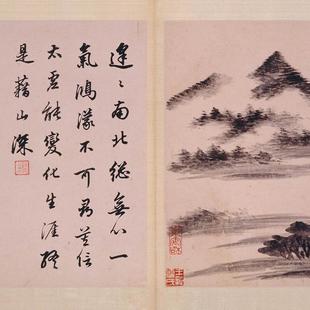 逢〻南北總無心一
氣鴻濛不可尋莫信
太虛能變化生涯終
是藉山深